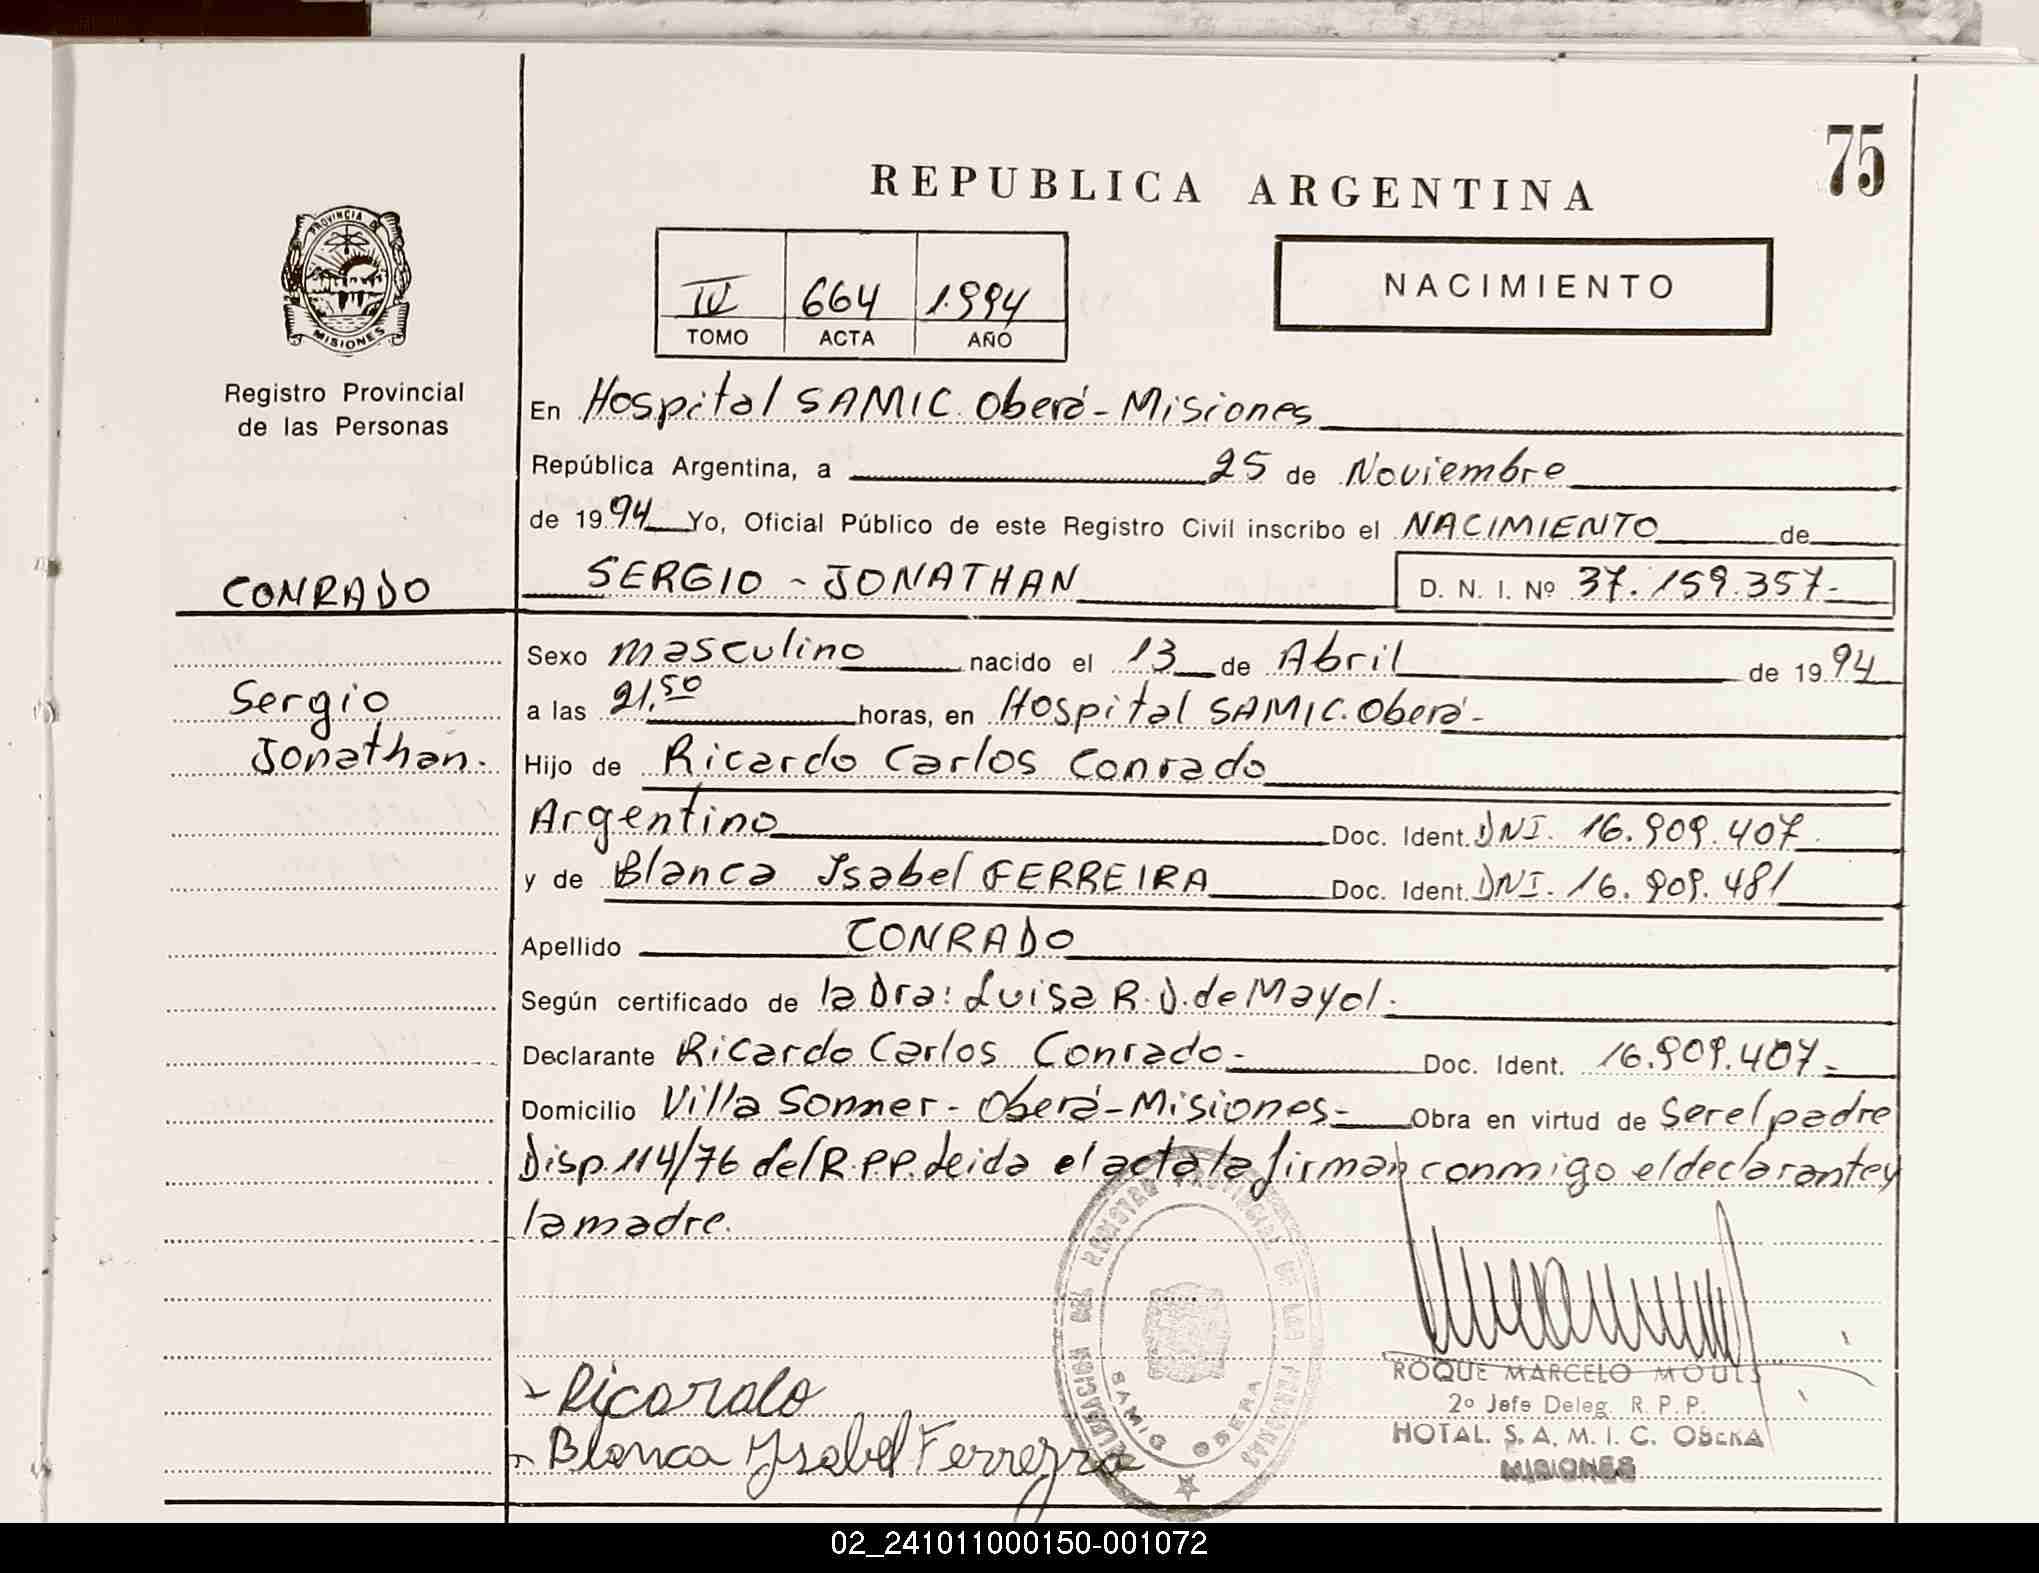 75
REPUBLICA ARGENTINA
PROVINCIA DE
MISIONES
IV 664 1.994
TOMO ACTA AÑO
NACIMIENTO
Registro Provincial
de las Personas
En Hospital SAMIC. Oberá - Misiones
República Argentina, a 25 de Noviembre
de 1994 Yo, Oficial Público de este Registro Civil inscribo el NACIMIENTO de
CONRADO SERGIO - JONATHAN D. N. I. Nº 37.159.357-
Sexo masculino nacido el 13 de Abril de 1994
Sergio
a las 21,50 horas, en Hospital SAMIC. Oberá-
Jonathan.
Hijo de Ricardo Carlos Conrado
Argentino Doc. Ident. DNI. 16.909.407.
y de Blanca Isabel FERREIRA Doc. Ident. DNI. 16.909.481
Apellido CONRADO
Según certificado de la Dra: Luisa R. D. de Mayol.
Declarante Ricardo Carlos Conrado- Doc. Ident. 16.909.407-
Domicilio Villa Sommer - Oberá - Misiones- Obra en virtud de ser el padre
Disp. 114/76 del R.P.P. Leida el acta la firman conmigo el declarante y
la madre.
Ricardo
Blanca Ysabel Ferreyra
DEL REGISTRO PROVINCIAL DE LAS PERSONAS
SAMIC OBERA
ROQUE MARCELO MOULS
2º Jefe Deleg. R. P. P.
HOTAL. S. A. M. I. C. OBERA
MISIONES
02_241011000150-001072